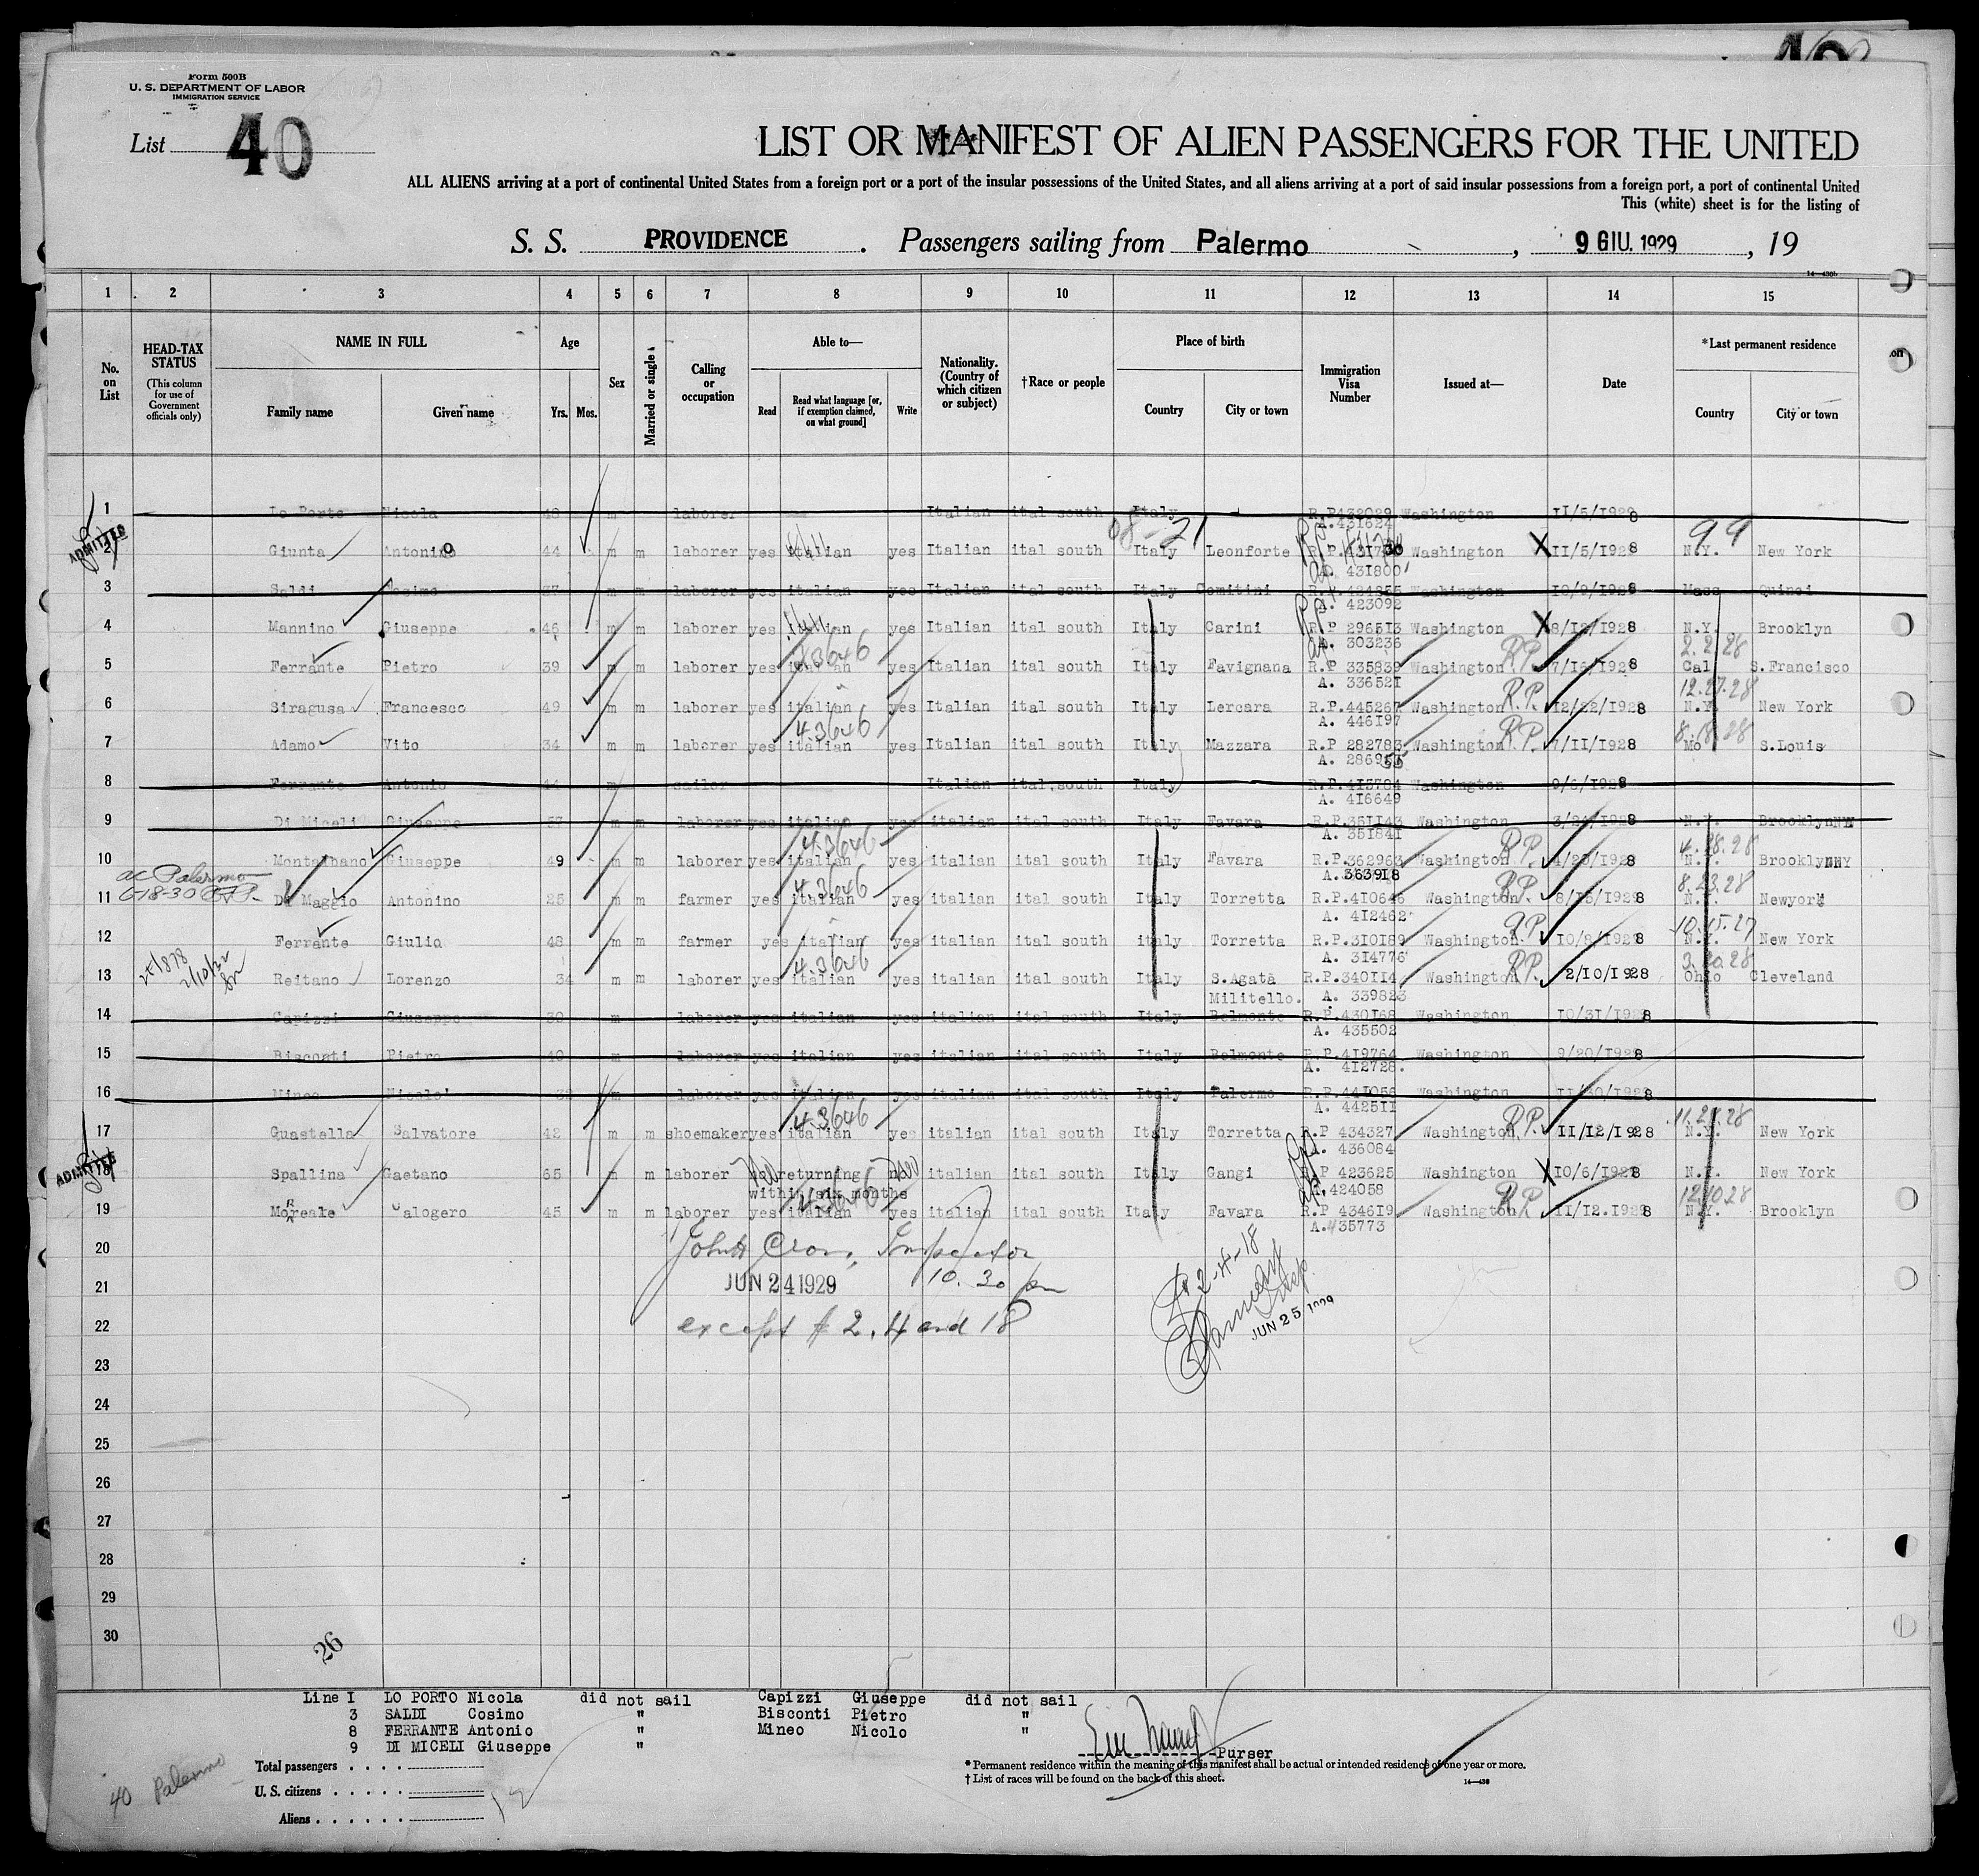 Form 500B
U. S. DEPARTMENT OF LABOR
IMMIGRATION SERVICE
List 40
LIST OR MANIFEST OF ALIEN PASSENGERS FOR THE UNITED
ALL ALIENS arriving at a port of continental United States from a foreign port or a port of the insular possessions of the United States, and all aliens arriving at a port of said insular possessions from a foreign port, a port of continental United
This (white) sheet is for the listing of
S. S. PROVIDENCE. Passengers sailing from Palermo, 9 GIU. 1929, 19
1 2 3 4 5 6 7 8 9 10 11 12 13 14 15
No. on List
HEAD-TAX STATUS (This column for use of Government officials only)
NAME IN FULL Family name Given name
Age Yrs. Mos.
Sex
Married or single
Calling or occupation
Able to— Read Read what language [or, if exemption claimed, on what ground] Write
Nationality. (Country of which citizen or subject)
†Race or people
Place of birth Country City or town
Immigration Visa Number
Issued at—
Date
*Last permanent residence Country City or town
1 Lo Porto Nicola 48 m laborer Italian ital south Italy R.P432029 Washington 11/5/1928
A. 431624
ADMITTED
2 Giunta Antonino 44 m m laborer yes italian yes Italian ital south Italy Leonforte Washington X 11/5/1928 N.Y. New York
A. 431800
3 Saldi Cosimo 37 m m laborer yes italian yes Italian ital south Italy Comitini Washington 10/9/1928 Mass Quinci
A. 423092
4 Mannino Giuseppe 46 m m laborer yes italian yes Italian ital south Italy Carini R.P 296513 Washington X 8/12/1928 N.Y. Brooklyn
A. 303236
43646 R.P. 2.2.28
5 Ferrante Pietro 39 m m laborer yes italian yes Italian ital south Italy Favignana R.P 335839 Washington 1928 Cal S.Francisco
A. 336521
R.P. 12.27.28
6 Siragusa Francesco 49 m m laborer yes italian yes Italian ital south Italy Lercara R.P.445267 Washington 12/22/1928 N.Y. New York
A. 446197
43646 R.P.
7 Adamo Vito 34 m m laborer yes italian yes Italian ital south Italy Mazzara R.P 282783 Washington 7/11/1928 Mo S.Louis
8 Ferrante Antonio 44 m sailor Italian ital.south Italy R.P.413784 Washington 9/6/1928
A. 416649
9 Di Miceli Giuseppe 57 m m laborer yes italian yes italian ital south Italy Favara R.P.351143 Washington 1928 N.Y. Brooklyn
A. 351841
43646 R.P. 4.28.28
10 Montalbano Giuseppe 49 m m laborer yes italian yes italian ital south Italy Favara R.P.362963 Washington 4/20/1928 N.Y. Brooklyn NY
A. 363918
ac Palermo
6-18-30
43646 R.P. 8.23.28
11 Di Maggio Antonino 25 m m farmer yes italian yes italian ital south Italy Torretta R.P.410646 Washington 8/15/1928 N.Y. Newyork
A. 412462
R.P. 10.15.27
12 Ferrante Giulio 48 m m farmer yes italian yes italian ital south italy Torretta R.P.310189 Washington 10/8/1928 N.Y. New York
A. 314776
43646 R.P. 3.20.28
13 Reitano Lorenzo 34 m m laborer yes italian yes italian ital south Italy S.Agata R.P.340114 Washington 2/10/1928 Ohio Cleveland
Militello. A. 339823
14 Capizzi Giuseppe 30 m laborer yes italian yes italian ital south Italy Belmonte R.P.430168 Washington 10/31/1928
A. 435502
15 Bisconti Pietro 40 m laborer yes italian yes italian ital south Italy Belmonte R.P.419764 Washington 9/20/1928
A. 412728.
16 Mineo Nicolo' m laborer yes italian yes italian ital south Italy Palermo R.P.441056 Washington 11/30/1928
A. 442511
43646 R.P.
17 Guastella Salvatore 42 m m shoemaker yes italian yes italian ital south Italy Torretta R.P 434327 Washington 11/12/1928 N.Y. New York
A. 436084
ADMITTED
18 Spallina Gaetano 65 m m laborer returning italian ital south Italy Gangi R.P 423625 Washington X 10/6/1928 N.Y. New York
within six months A. 424058
R.P. 12.10.28
19 Morreale Calogero 45 m m laborer yes italian yes italian ital south Italy Favara R.P 434619 Washington 11/12.1928 N.Y. Brooklyn
A. 435773
20
21
22
23
24
25
26
27
28
29
30
Inspector
JUN 24 1929 10.30 pm
except # 2, 4 and 18
2-4-18
JUN 25 1929
26
Line 1 LO PORTO Nicola did not sail Capizzi Giuseppe did not sail
3 SALDI Cosimo " Bisconti Pietro "
8 FERRANTE Antonio " Mineo Nicolo "
9 DI MICELI Giuseppe "
Purser
Total passengers . . . .
U. S. citizens . . . . .
Aliens . . . . . .
12
40 Palermo
* Permanent residence within the meaning of this manifest shall be actual or intended residence of one year or more.
† List of races will be found on the back of this sheet.
14—430